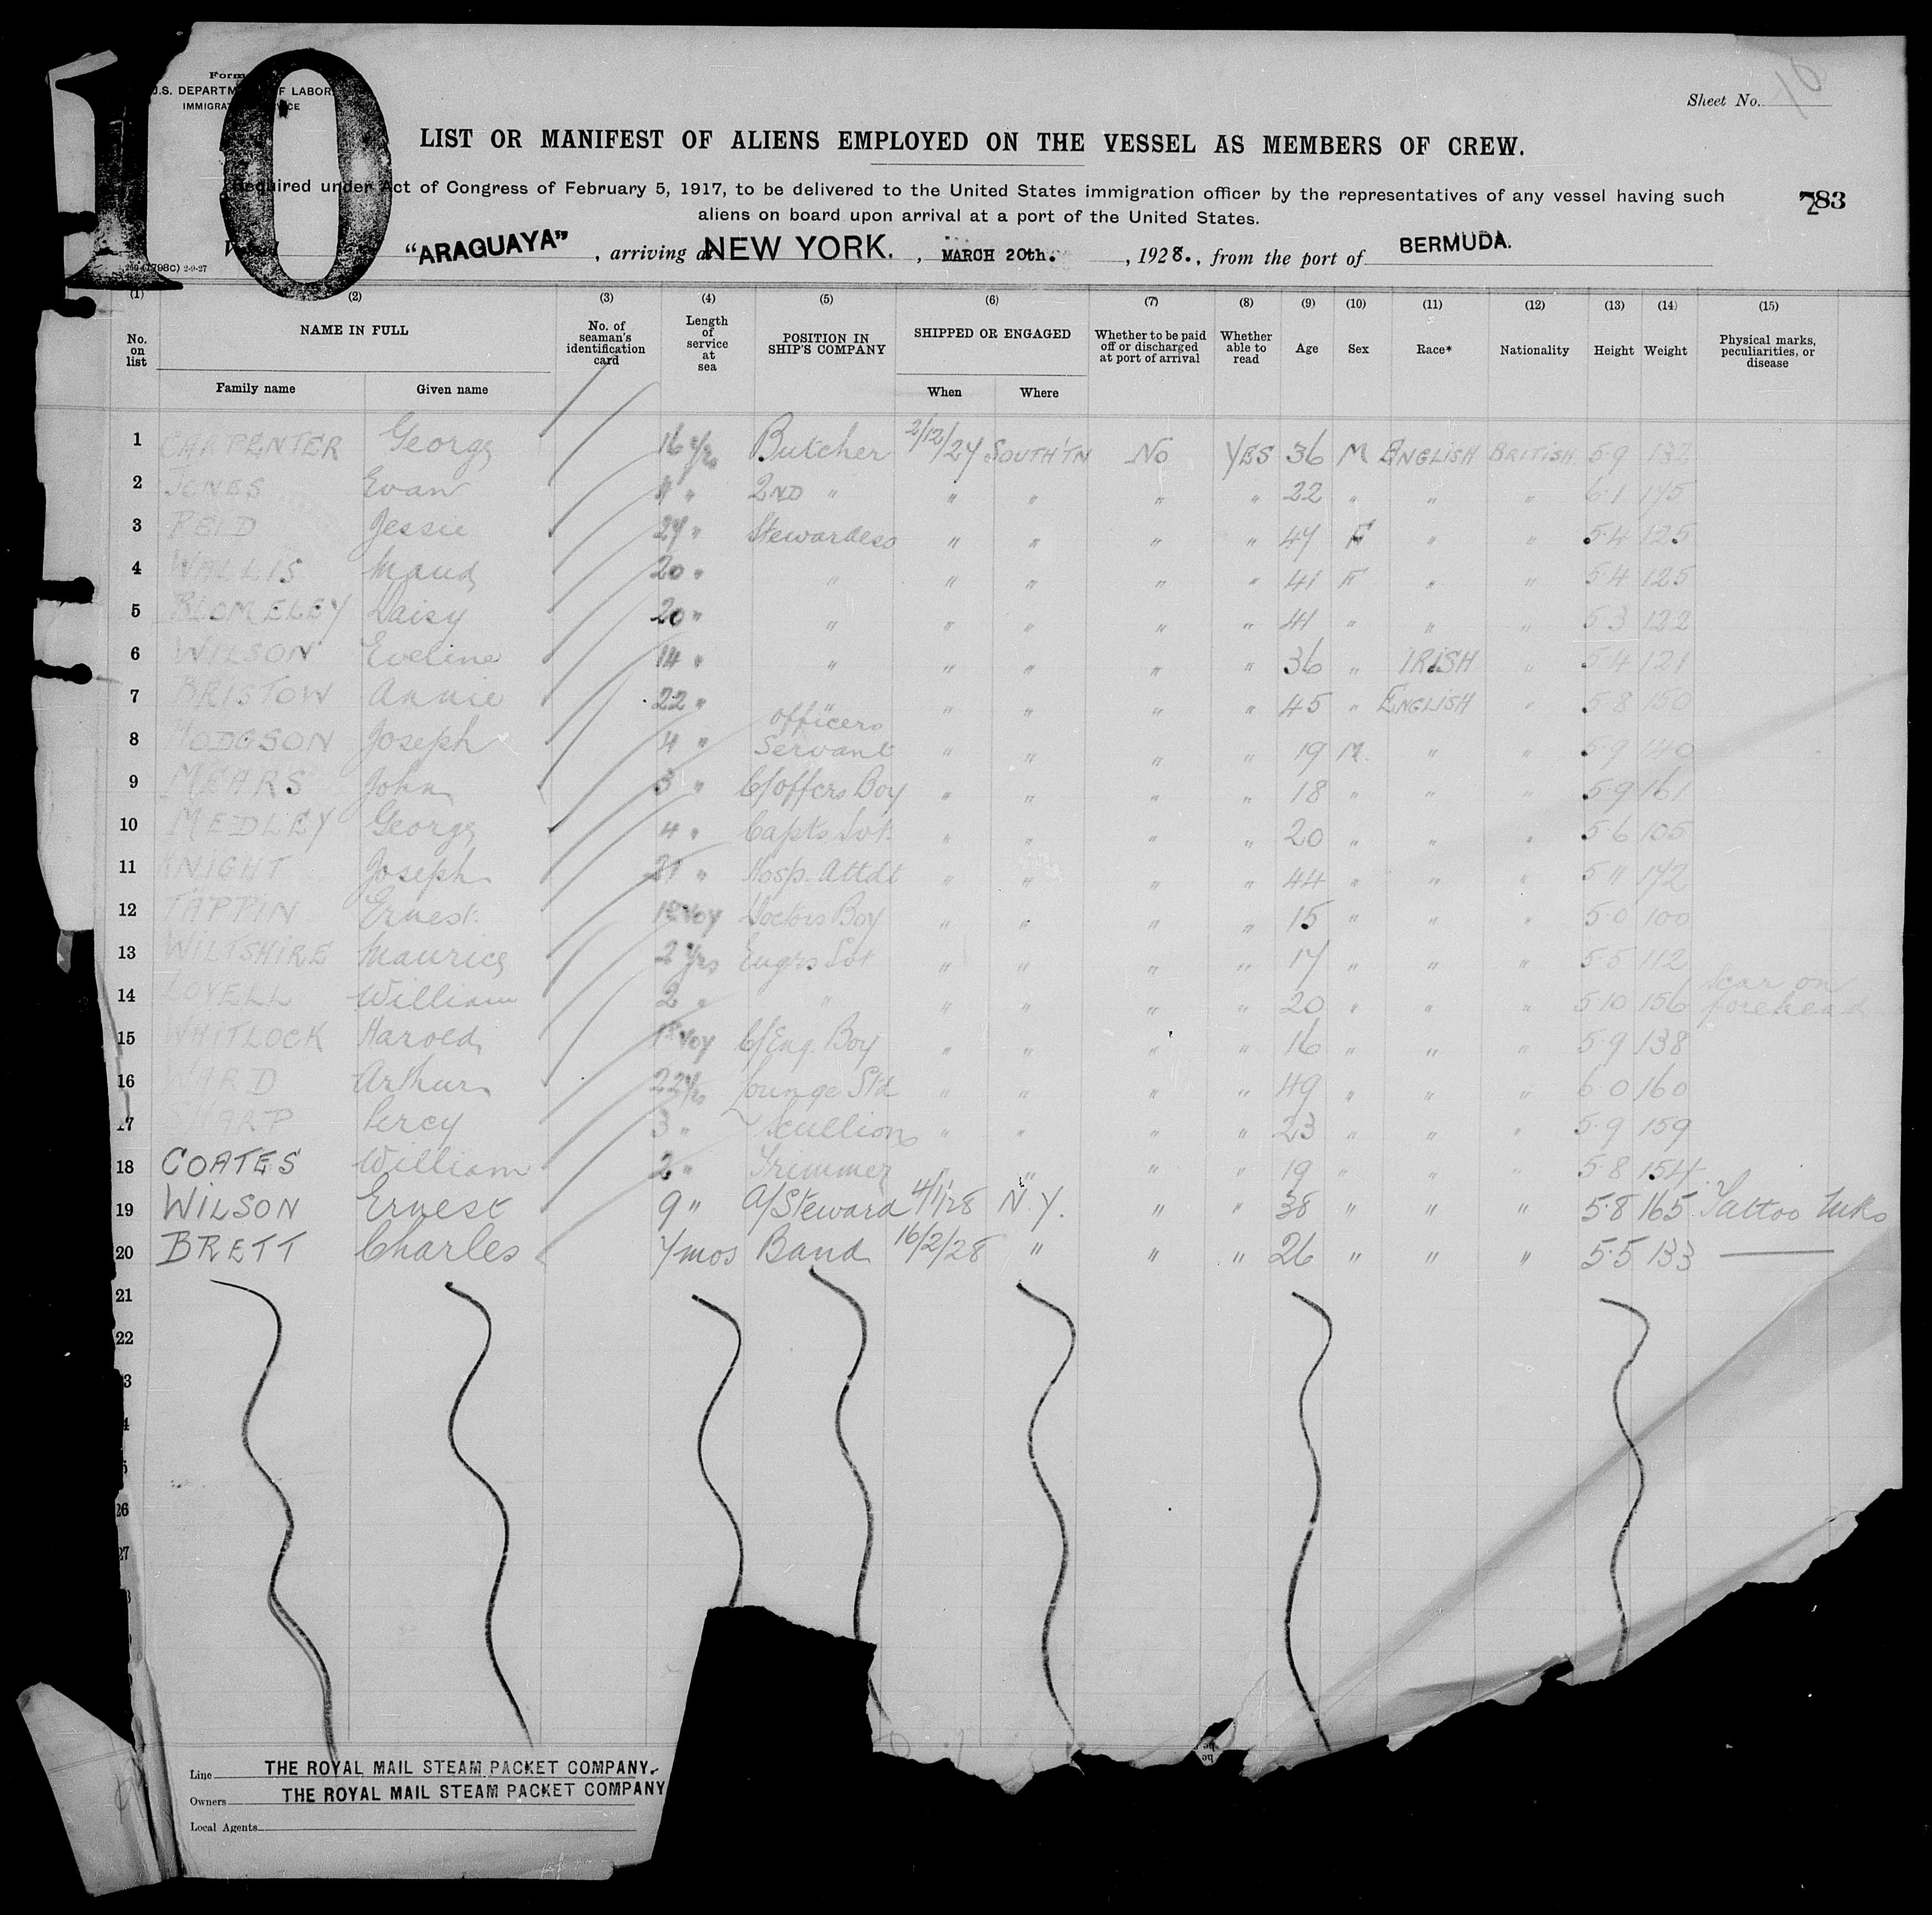 10
Form
U.S. DEPARTMENT OF LABOR
IMMIGRATION SERVICE
Sheet No. 10
LIST OR MANIFEST OF ALIENS EMPLOYED ON THE VESSEL AS MEMBERS OF CREW.
Required under Act of Congress of February 5, 1917, to be delivered to the United States immigration officer by the representatives of any vessel having such
aliens on board upon arrival at a port of the United States.
783
Vessel "ARAGUAYA", arriving at NEW YORK., MARCH 20th., 1928., from the port of BERMUDA.
(1) (2) (3) (4) (5) (6) (7) (8) (9) (10) (11) (12) (13) (14) (15)
No. on list NAME IN FULL Family name Given name No. of seaman's identification card Length of service at sea POSITION IN SHIP'S COMPANY SHIPPED OR ENGAGED When Where Whether to be paid off or discharged at port of arrival Whether able to read Age Sex Race* Nationality Height Weight Physical marks, peculiarities, or disease
1 CARPENTER George 16 yrs Butcher 2/12/27 SOUTH'TN No YES 36 M ENGLISH BRITISH 5·9 132
2 JONES Evan " 2ND " " " " " 22 " " " 6·1 175
3 REID Jessie 27 " Stewardess " " " " 47 F " " 5·4 125
4 WALLIS Maud 20 " " " " " " 41 F " " 5·4 125
5 BLOMELEY Daisy 20 " " " " " " 41 " " " 5·3 122
6 WILSON Eveline 14 " " " " " " 36 " IRISH " 5·4 121
7 BRISTOW Annie 22 " " " " " " 45 " ENGLISH " 5·8 150
8 HODGSON Joseph 4 " officers Servant " " " " 19 M. " " 5·9 140
9 MEARS John 3 " C/Offcrs Boy " " " " 18 " " " 5·9 161
10 MEDLEY George 4 " Capts Svt. " " " " 20 " " " 5·6 105
11 KNIGHT Joseph 21 " Hosp. Attdt " " " " 44 " " " 5·11 172
12 TAPPIN Ernest 1st Voy Doctors Boy " " " " 15 " " " 5·0 100
13 WILTSHIRE Maurice 2 yrs Engrs Svt " " " " 17 " " " 5·5 112
14 LOVELL William 2 " " " " " " 20 " " " 5·10 156 Scar on forehead
15 WHITLOCK Harold 1st Voy C/Eng. Boy " " " " 16 " " " 5·9 138
16 WARD Arthur 22 yrs Lounge Std " " " " 49 " " " 6·0 160
17 SHARP Percy 3 " Scullion " " " " 23 " " " 5·9 159
18 COATES William 2 " Trimmer " " " " 19 " " " 5·8 154
19 WILSON Ernest 9 " A/Steward 4/1/28 N.Y. " " 38 " " " 5·8 165 Tattoo Mks
20 BRETT Charles 7 mos Band 16/2/28 " " " 26 " " " 5·5 133
21
22
26
27
Line THE ROYAL MAIL STEAM PACKET COMPANY.
Owners THE ROYAL MAIL STEAM PACKET COMPANY
Local Agents